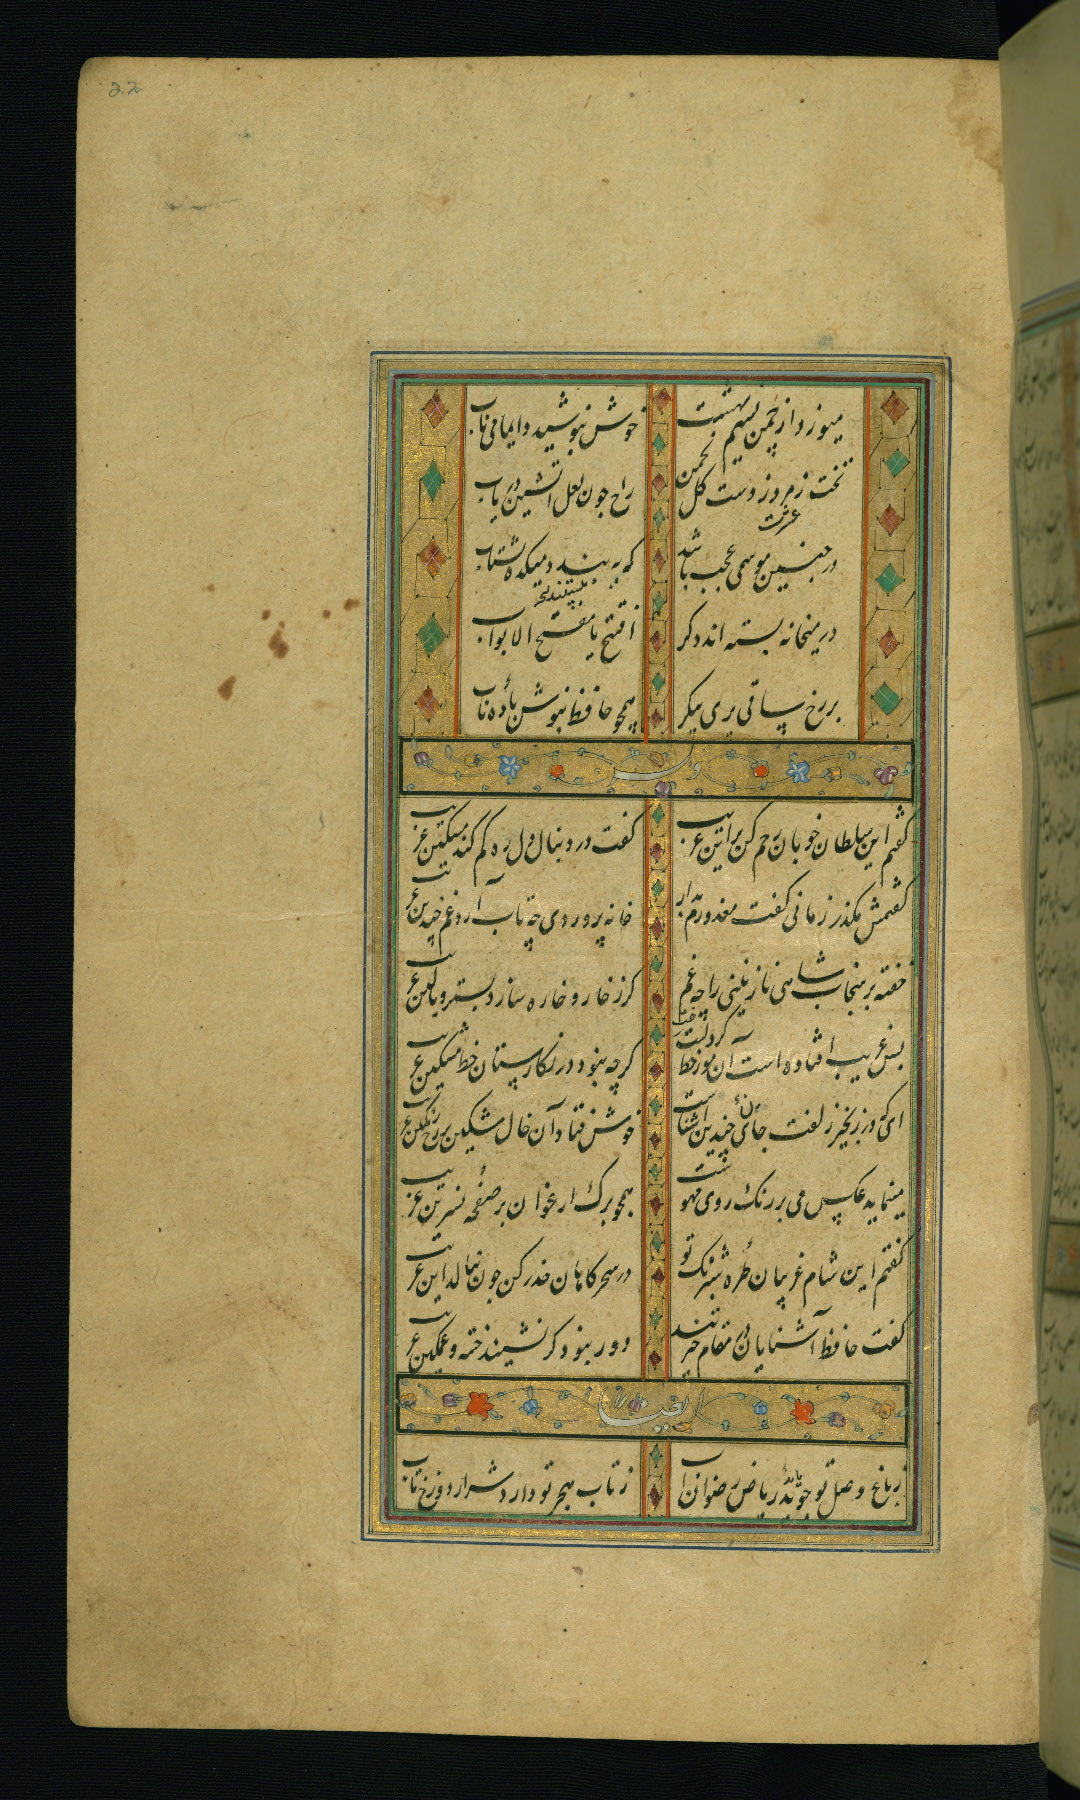 22
میوزد از چمن نسیم بهشت
خوش بنوشید دایما می ناب
تخت زمرد زدست گل بچمن
راح چون لعل آتشین دریاب
در چنین موسمی عجب باشد
که ببندند میکده بشتاب
در میخانه بسته اند دگر
افتتح یا مفتح الابواب
بر رخ ساقی پری پیکر
همچو حافظ بنوش باده ناب
وله
گفتم این سلطان خوبان رحم کن بر این غریب
گفت در دنبال دل ره گم کند مسکین غریب
گفتمش مگذر زمانی گفت معذورم بدار
خانه پروردی چه تاب آرد غم چندین غریب
خفته بر سنجاب شاهی نازنینی را چه غم
گر ز خار و خاره سازد بستر و بالین غریب
بس غریب افتاده است آن مور خط گرد رخت
گرچه نبود در نگارستان خط مشکین غریب
ای که در زنجیر زلفت جای چندین آشناست
خوش فتاد آن خال مشکین بر رخ رنگین غریب
مینماید عکس می بر رنگ روی مهوشت
همچو برگ ارغوان بر صفحه نسرین غریب
گفتم این شام غریبان طره شبرنگ تو
در سحرگاهان حذر کن چون بنالد این غریب
گفت حافظ آشنایان در مقام حیرتند
دور نبود گر نشیند خسته و غمگین غریب
ایضا
ز باغ وصل تو جوید ریاض رضوان آب
ز تاب هجر تو دارد شرار دوزخ تاب